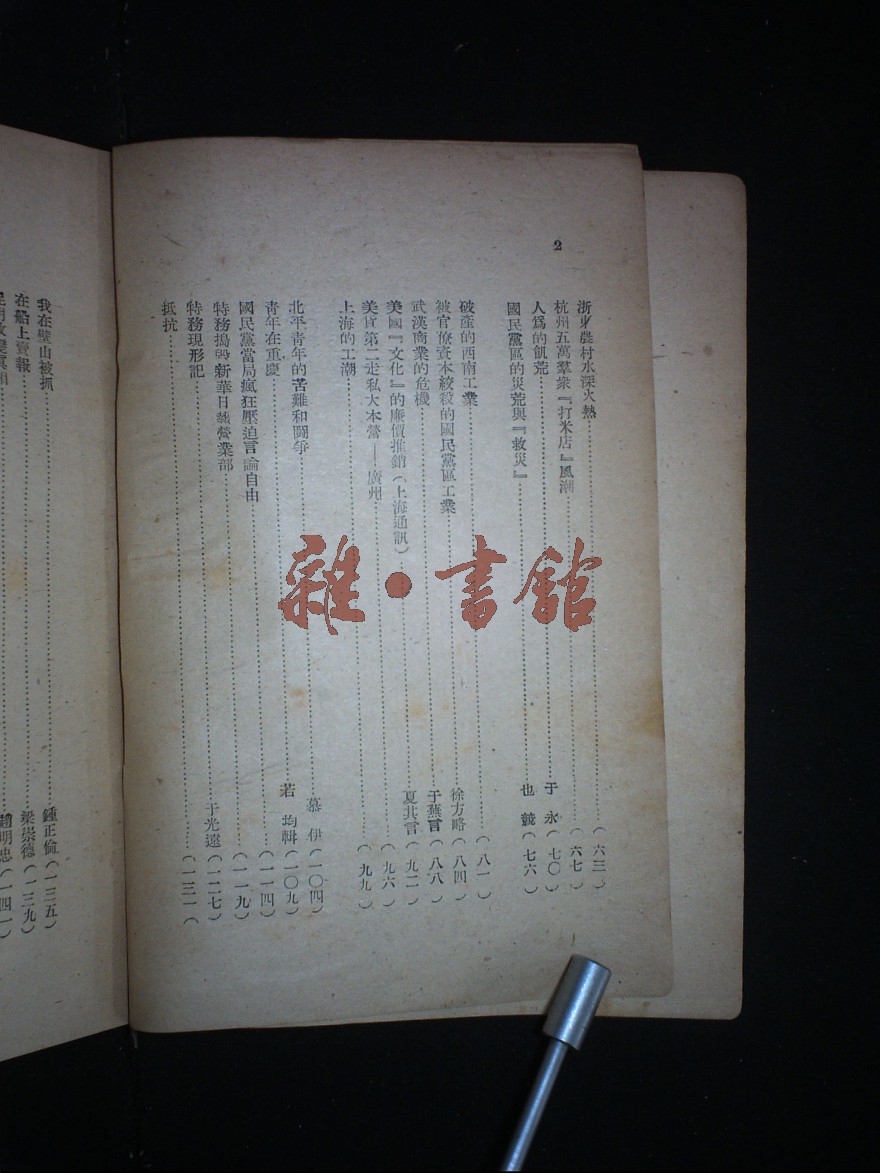 2
浙東農村水深火熱……(六三)
杭州五萬羣衆『打米店』風潮……(六七)
人爲的飢荒……于 永(七〇)
國民黨區的災荒與『救災』……也 競(七六)
破產的西南工業……(八一)
被官僚資本絞殺的國民黨區工業……徐方略(八四)
武漢商業的危機……于蕪言(八八)
美國『文化』的廉價推銷(上海通訊)……夏其言(九二)
美貨第二走私大本營——廣州……(九六)
上海的工潮……(九九)
北平青年的苦難和鬪爭……慕 伊(一〇四)
青年在重慶……若 均輯(一〇九)
國民黨當局瘋狂壓迫言論自由……(一一四)
特務搗毀新華日報營業部……(一一九)
特務現形記……于光遠(一二七)
抵抗……(一三一)
我在璧山被抓……鍾正倫(一三五)
在船上賣報……梁崇德(一三九)
趙明忠(一四一)
雜·書館